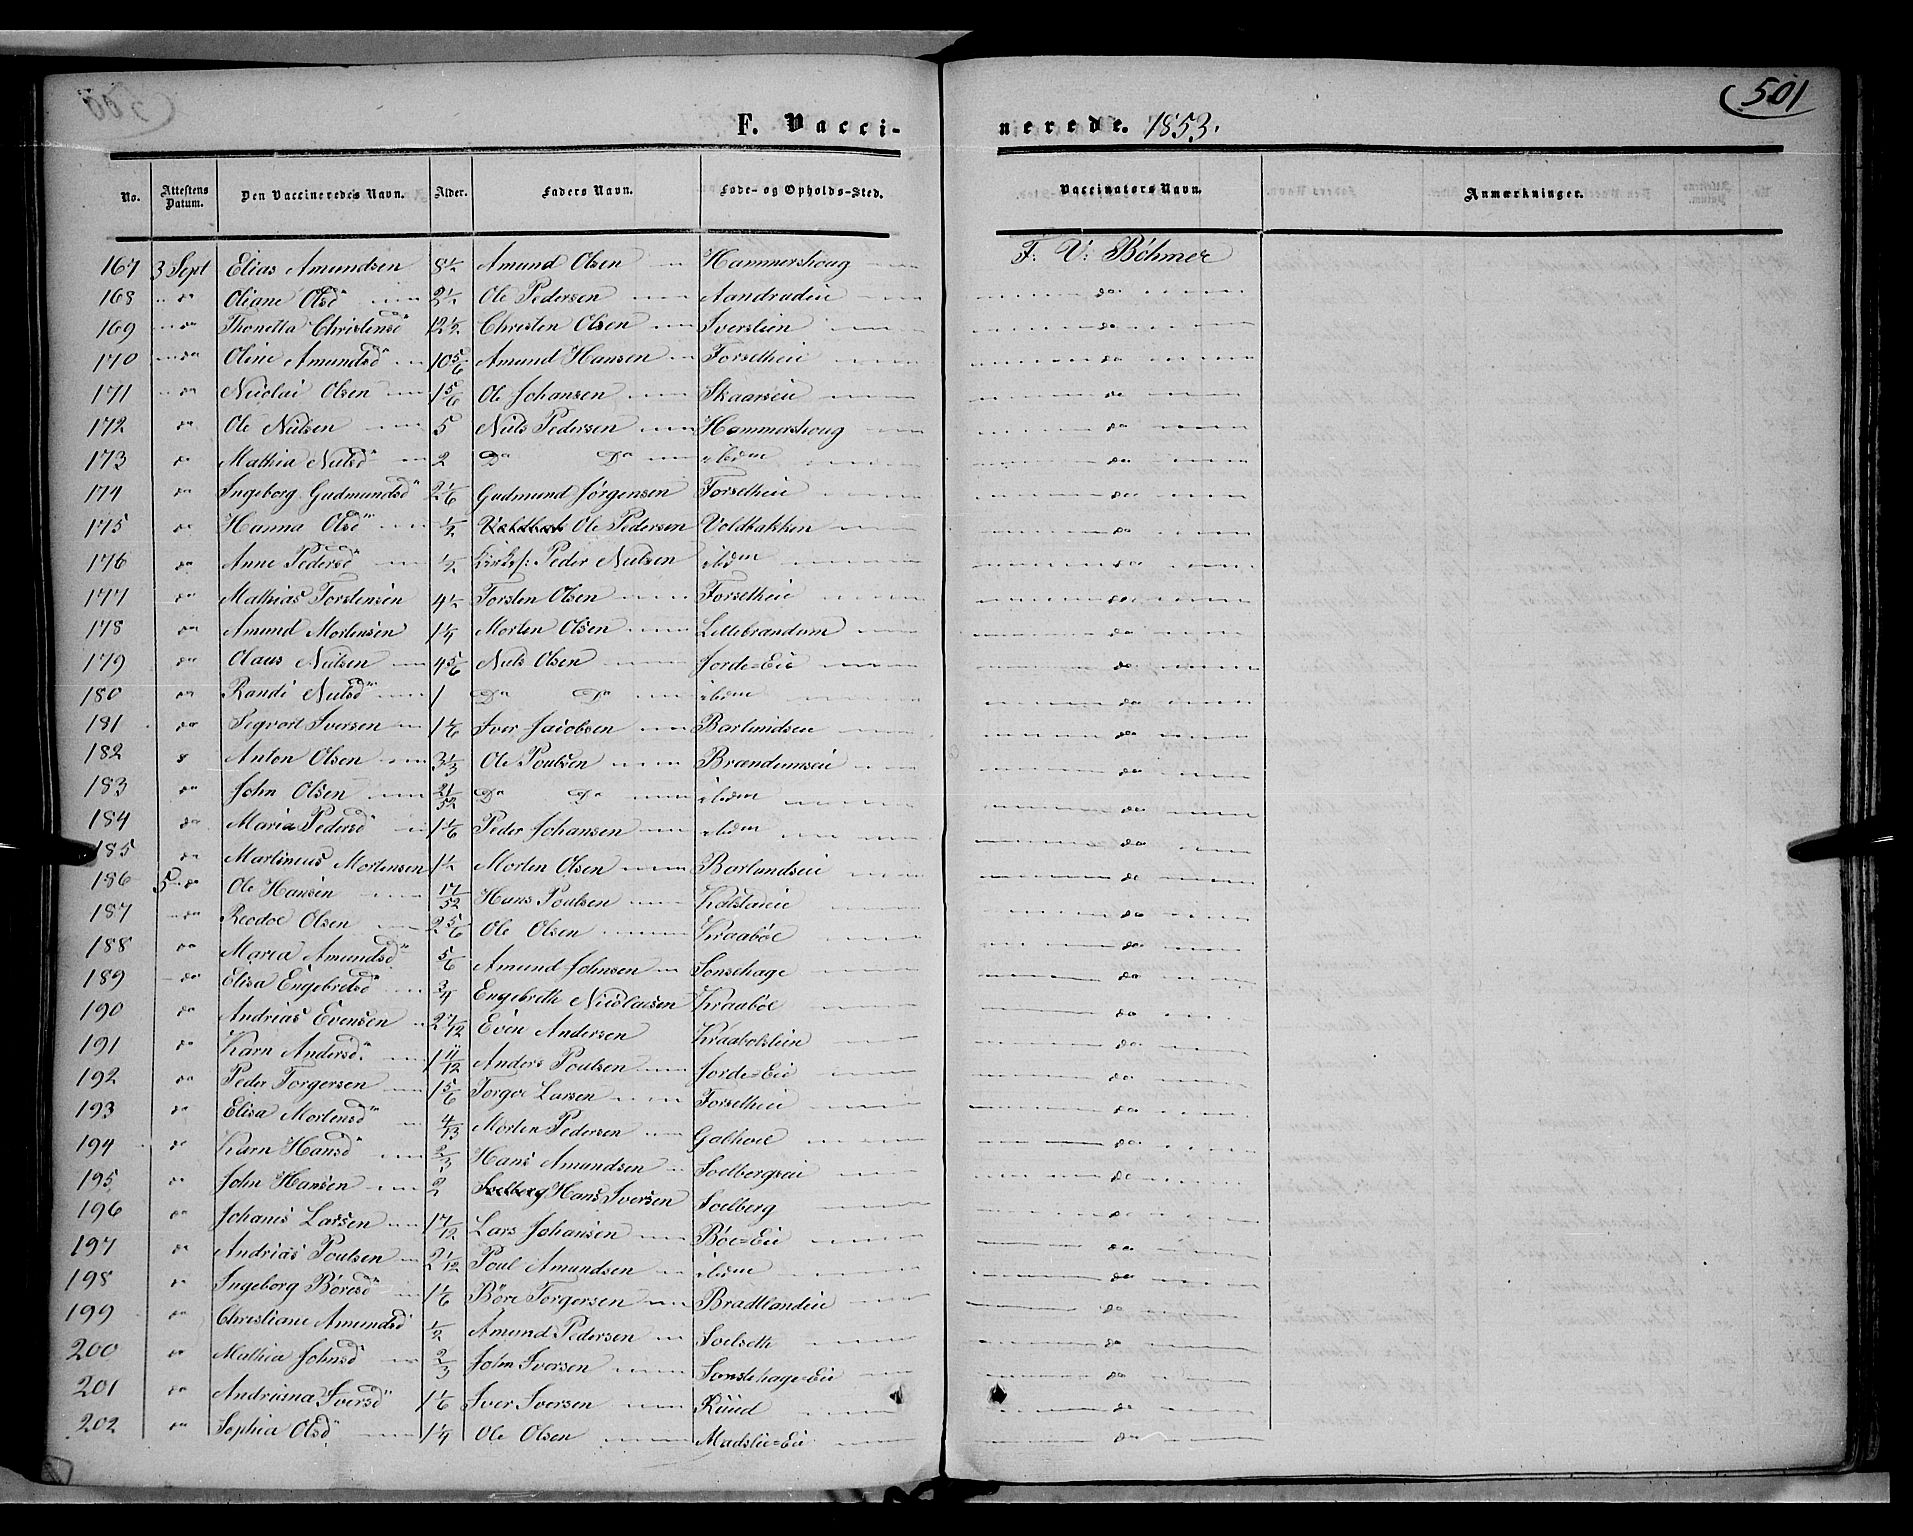 501
F. Vacci- nerede. 1853.
No. Attestens Datum. Den Vaccineredes Navn. Alder. Faders Navn. Føde- og Opholds-Sted. Vaccinators Navn. Anmærkninger.
167 3 Sept Elias Amundsen 8½ Amund Olsen Hammershoug F. V: Böhmer
168 do Oliane Olsd 2½ Ole Pedersen Aandrudeie do
169 do Thonetta Christensd 12½ Christen Olsen Iverslien do
170 do Oline Amundsd 10 5/6 Amund Hansen Forsetheie do
171 do Nicolai Olsen 1 5/6 Ole Johansen Skaarseie do
172 do Ole Nilsen 5 Niels Pedersen Hammershoug do
173 do Mathia Nilsd 2 Do Do ibidm do
174 do Ingeborg Gudmundsd 2 1/6 Gudmund Jørgensen Forsetheie do
175 do Hanna Olsd ½ Ole Pedersen Voldbakken do
176 do Anne Pedersd ½ Peder Nilsen ibidm do
177 do Mathias Torstensen 4½ Torsten Olsen Forsetheie do
178 do Amund Mortensen 1¼ Morten Olsen Lillebrandum do
179 do Olaus Nilsen 4 5/6 Niels Olsen Jorde-Eie do
180 do Randi Nilsd 1 Do Do ibidm do
181 do Segvort Iversen 1 1/6 Iver Jacobsen Barlundseie do
182 do Anton Olsen 3 1/3 Ole Poulsen Brandumseie do
183 do John Olsen 21/52 Do Do ibidm do
184 do Maria Pedersd 1 1/6 Peder Johansen ibidm do
185 do Martinus Mortensen 1½ Morten Olsen Barlundseie do
186 5 do Ole Hansen 17/52 Hans Poulsen Kalstadeie do
187 do Reodor Olsen 2 5/6 Ole Olsen Kraabøe do
188 do Marea Amundsd 5/6 Amund Johnsen Sonsehage do
189 do Elisa Engebretsd 3/4 Engebreth Nicolaisen Kraabøe do
190 do Andrias Evensen 2 7/12 Even Andersen Kraabølslein do
191 do Karn Andersd 1 11/12 Anders Poulsen Jorde-Eie do
192 do Peder Torgersen 1 5/6 Torger Larsen Forsetheie do
193 do Elisa Mortensd 4/13 Morten Pedersen do
194 do Karn Hansd 2/3 Hans Amundsen Soelbergseie do
195 do John Hansen 2 Hans Iversen Soelberg do
196 do Johanes Larsen 1 7/12 Lars Johansen Bøe-Eie do
197 do Andrias Poulsen 2 1/12 Poul Amundsen ibidm do
198 do Ingeborg Börresd 1 1/6 Böre Torgersen Bradtlandeie do
199 do Christiane Amundsd ½ Amund Pedersen Soelseth do
200 do Mathia Johnsd 2/3 John Iversen Sonstehage-Eie do
201 do Andriana Iversd 1 1/6 Iver Iversen Ruud do
202 do Sophia Olsd 1¼ Ole Olsen Madslie-Eie do